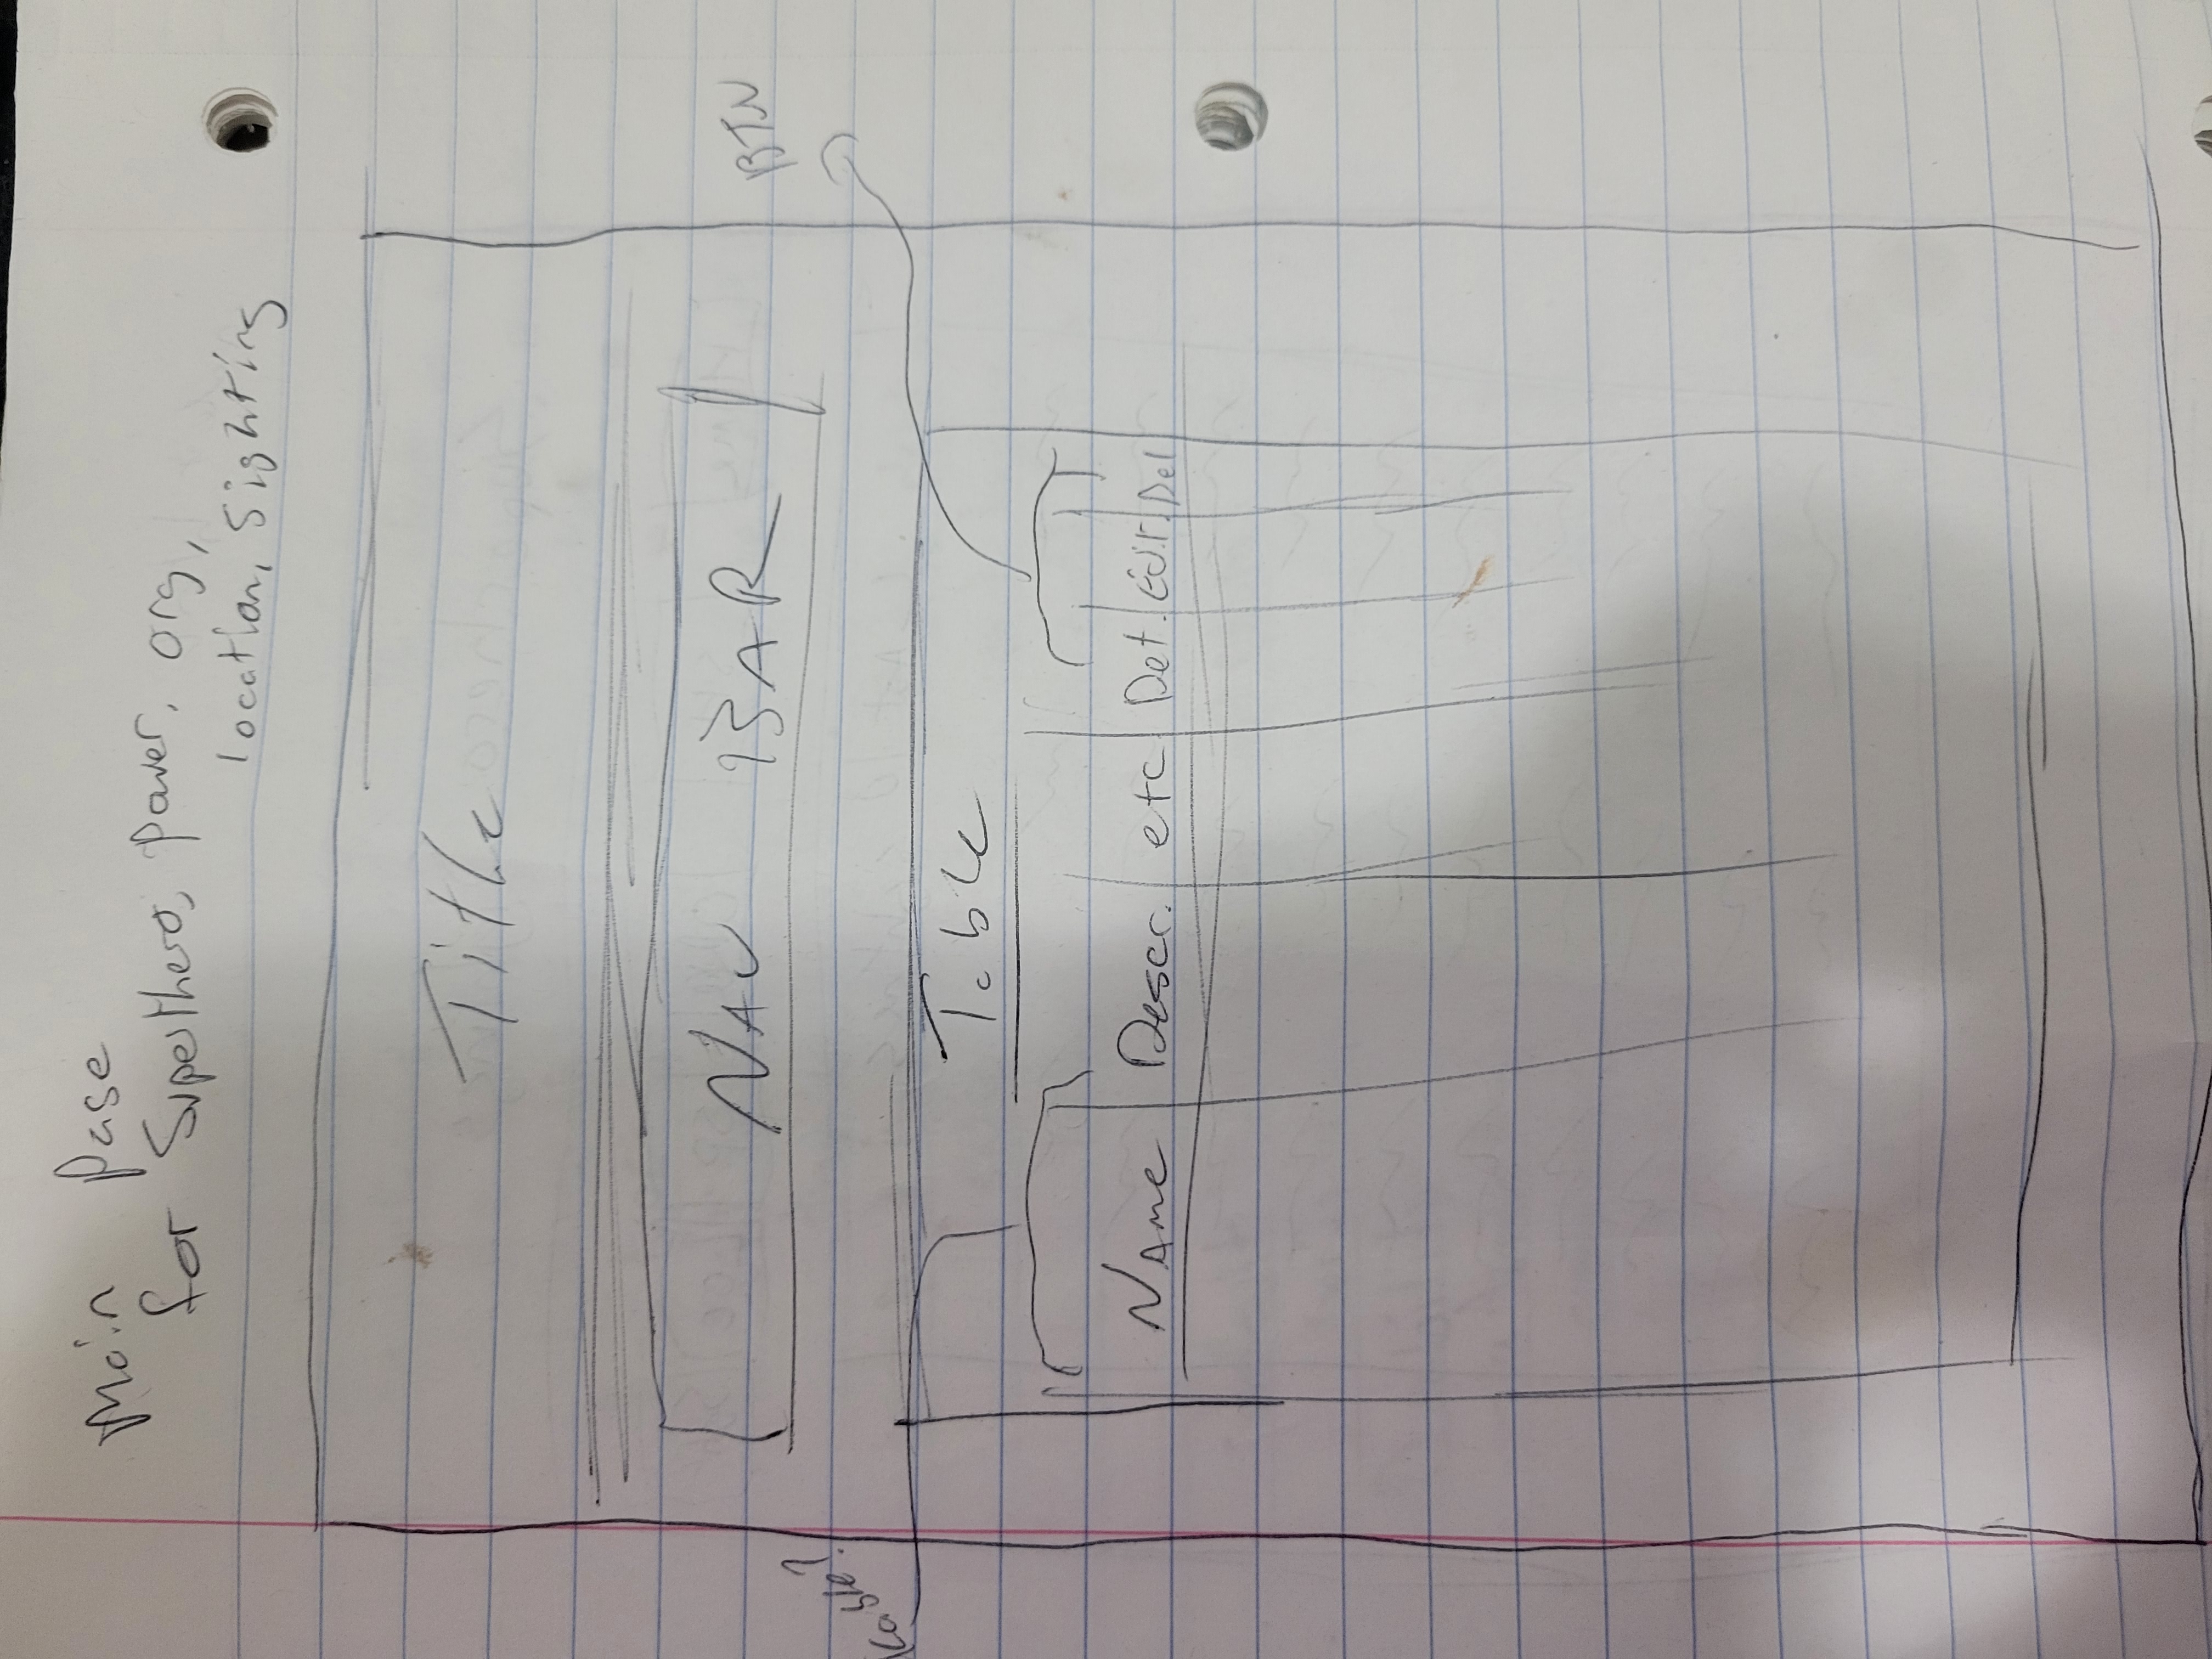 Main Page
for Superhero, Power, org,
location, Sighting
Title
NAV BAR
BTN
kable?
Table
Name Descr. etc Det. Edit. Del